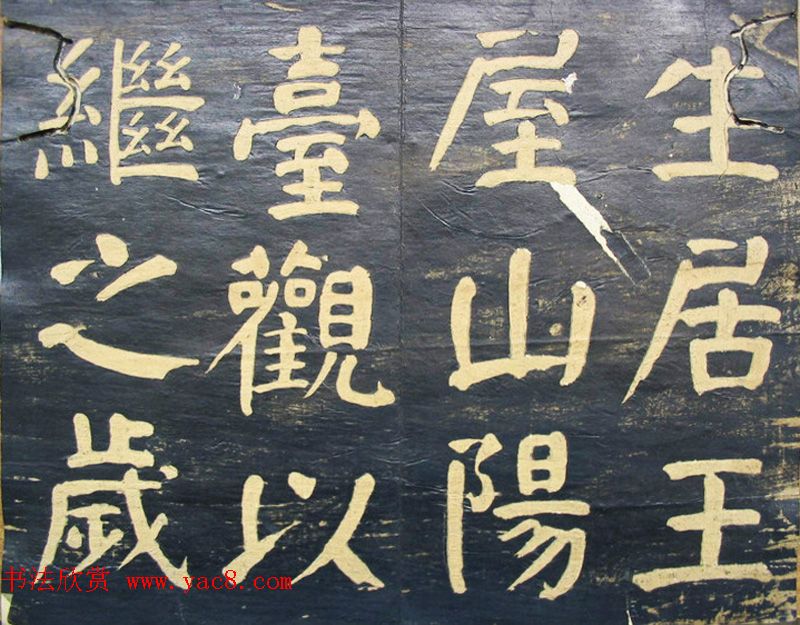 生居王
屋山陽
臺觀以
繼之歲
书法欣赏 www.yac8.com